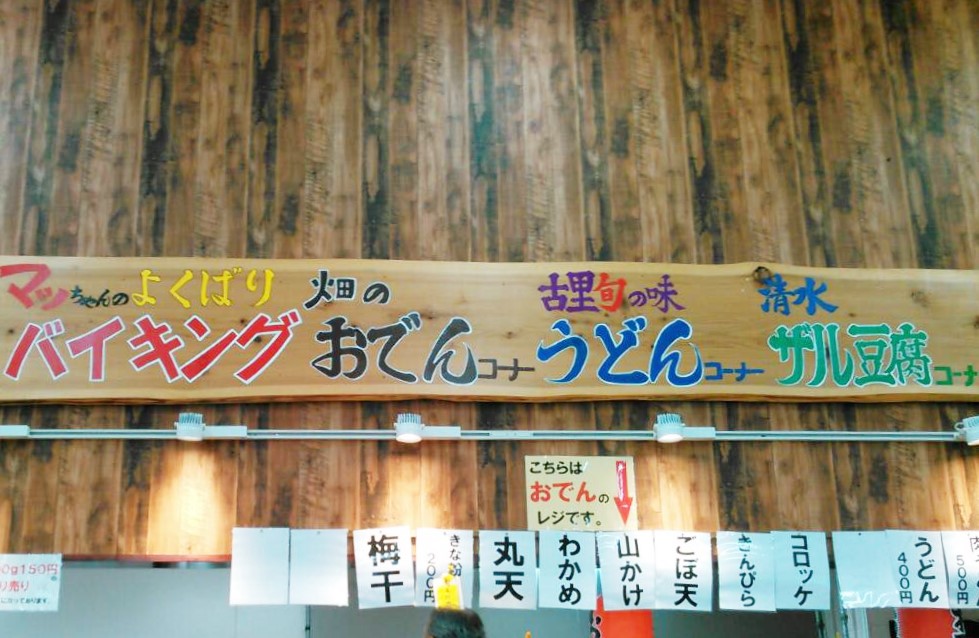 マッちゃんのよくばり
バイキング
畑の
おでんコーナー
古里旬の味
うどんコーナー
清水
ザル豆腐コーナ
こちらは
おでんの
レジです。
0g150円
り売り
梅干
きな粉
200円
丸天
わかめ
山かけ
ごぼ天
きんぴら
コロッケ
うどん
400円
500円